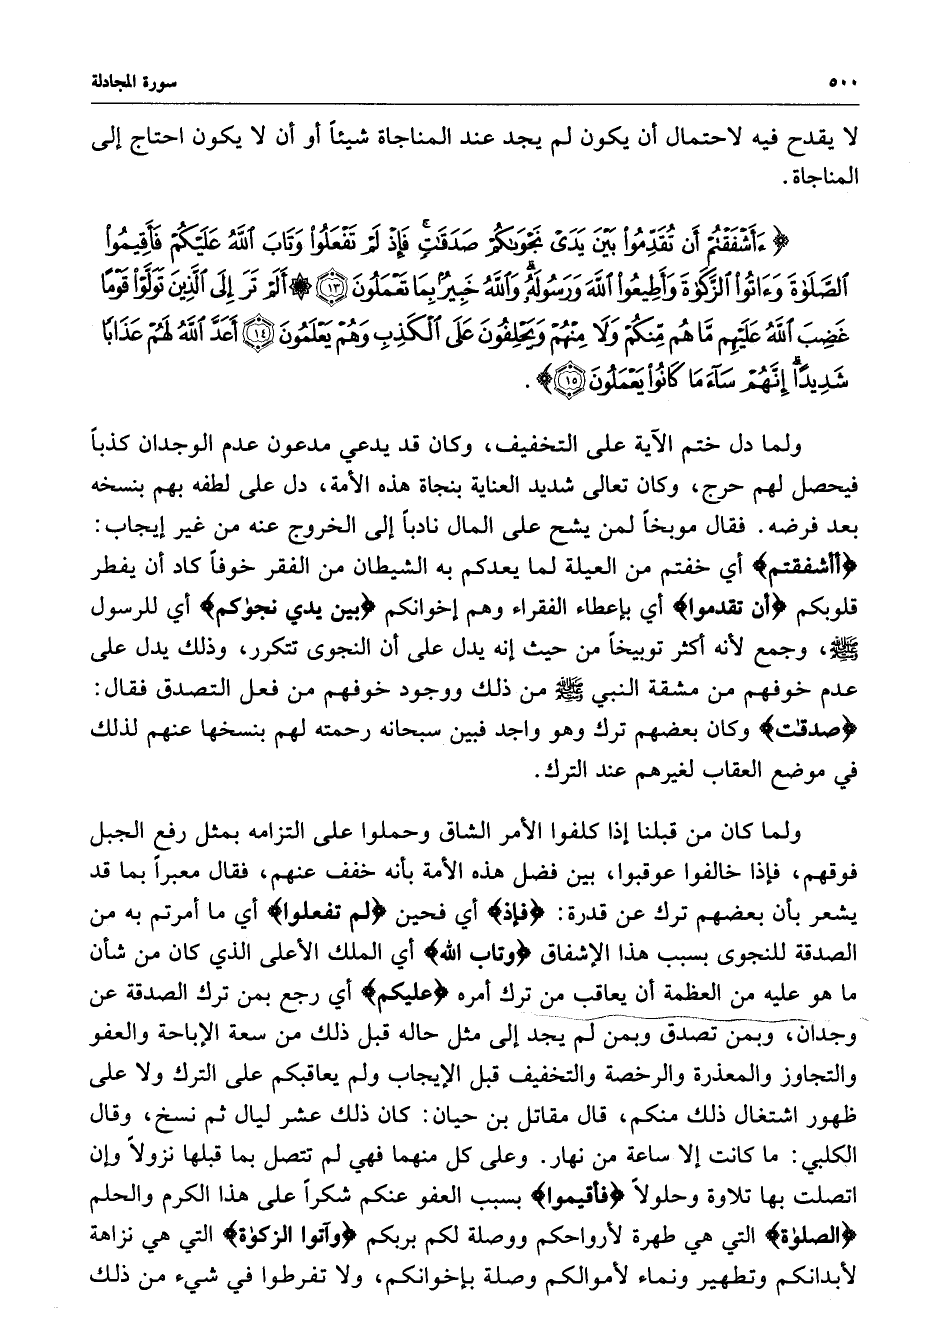 ٥٠٠ سورة المجادلة
لا يقدح فيه لاحتمال أن يكون لم يجد عند المناجاة شيئاً أو أن لا يكون احتاج إلى
المناجاة .
﴿ ءَأَشْفَقْتُمْ أَن تُقَدِّمُوا۟ بَيْنَ يَدَىْ نَجْوَىٰكُمْ صَدَقَـٰتٍ ۚ فَإِذْ لَمْ تَفْعَلُوا۟ وَتَابَ ٱللَّهُ عَلَيْكُمْ فَأَقِيمُوا۟
ٱلصَّلَوٰةَ وَءَاتُوا۟ ٱلزَّكَوٰةَ وَأَطِيعُوا۟ ٱللَّهَ وَرَسُولَهُۥ ۚ وَٱللَّهُ خَبِيرٌۢ بِمَا تَعْمَلُونَ ﴿١٣﴾ ۞ أَلَمْ تَرَ إِلَى ٱلَّذِينَ تَوَلَّوْا۟ قَوْمًا
غَضِبَ ٱللَّهُ عَلَيْهِم مَّا هُم مِّنكُمْ وَلَا مِنْهُمْ وَيَحْلِفُونَ عَلَى ٱلْكَذِبِ وَهُمْ يَعْلَمُونَ ﴿١٤﴾ أَعَدَّ ٱللَّهُ لَهُمْ عَذَابًا
شَدِيدًا ۖ إِنَّهُمْ سَآءَ مَا كَانُوا۟ يَعْمَلُونَ ﴿١٥﴾ ﴾ .
ولما دل ختم الآية على التخفيف، وكان قد يدعي مدعون عدم الوجدان كذباً
فيحصل لهم حرج، وكان تعالى شديد العناية بنجاة هذه الأمة، دل على لطفه بهم بنسخه
بعد فرضه. فقال موبخاً لمن يشح على المال نادباً إلى الخروج عنه من غير إيجاب:
﴿أأشفقتم﴾ أي خفتم من العيلة لما يعدكم به الشيطان من الفقر خوفاً كاد أن يفطر
قلوبكم ﴿أن تقدموا﴾ أي بإعطاء الفقراء وهم إخوانكم ﴿بين يدي نجوٰكم﴾ أي للرسول
ﷺ، وجمع لأنه أكثر توبيخاً من حيث إنه يدل على أن النجوى تتكرر، وذلك يدل على
عدم خوفهم من مشقة النبي ﷺ من ذلك ووجود خوفهم من فعل التصدق فقال:
﴿صدقٰت﴾ وكان بعضهم ترك وهو واجد فبين سبحانه رحمته لهم بنسخها عنهم لذلك
في موضع العقاب لغيرهم عند الترك.
ولما كان من قبلنا إذا كلفوا الأمر الشاق وحملوا على التزامه بمثل رفع الجبل
فوقهم، فإذا خالفوا عوقبوا، بين فضل هذه الأمة بأنه خفف عنهم، فقال معبراً بما قد
يشعر بأن بعضهم ترك عن قدرة: ﴿فإذ﴾ أي فحين ﴿لم تفعلوا﴾ أي ما أمرتم به من
الصدقة للنجوى بسبب هذا الإشفاق ﴿وتاب الله﴾ أي الملك الأعلى الذي كان من شأن
ما هو عليه من العظمة أن يعاقب من ترك أمره ﴿عليكم﴾ أي رجع بمن ترك الصدقة عن
وجدان، وبمن تصدق وبمن لم يجد إلى مثل حاله قبل ذلك من سعة الإباحة والعفو
والتجاوز والمعذرة والرخصة والتخفيف قبل الإيجاب ولم يعاقبكم على الترك ولا على
ظهور اشتغال ذلك منكم، قال مقاتل بن حيان: كان ذلك عشر ليال ثم نسخ، وقال
الكلبي: ما كانت إلا ساعة من نهار. وعلى كل منهما فهي لم تتصل بما قبلها نزولاً وإن
اتصلت بها تلاوة وحلولاً ﴿فأقيموا﴾ بسبب العفو عنكم شكراً على هذا الكرم والحلم
﴿الصلوٰة﴾ التي هي طهرة لأرواحكم ووصلة لكم بربكم ﴿وآتوا الزكوٰة﴾ التي هي نزاهة
لأبدانكم وتطهير ونماء لأموالكم وصلة بإخوانكم، ولا تفرطوا في شيء من ذلك